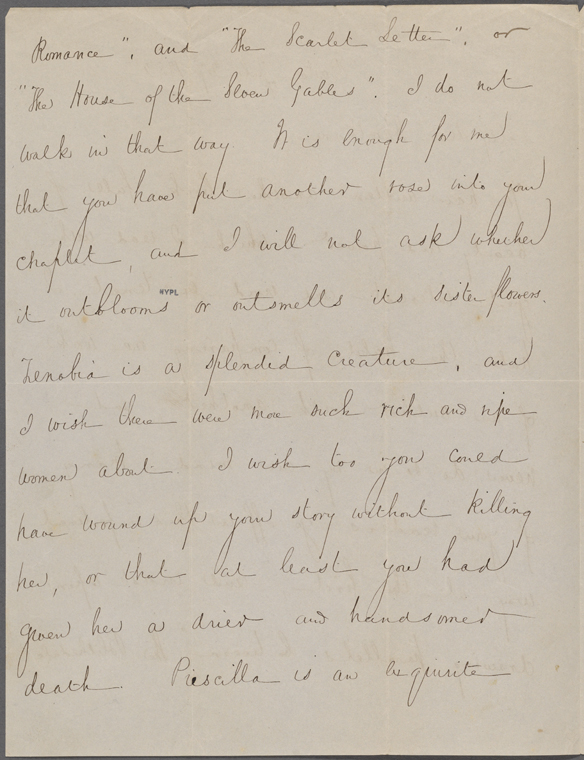 Romance", and "The Scarlet Letter", or
"The House of the Seven Gables". I do not
walk in that way. It is enough for me
that you have put another rose into your
chaplet, and I will not ask whether
NYPL
it outblooms or outsmells its sister flowers.
Zenobia is a splendid creature, and
I wish there were more such rich and ripe
women about. I wish too you could
have wound up your story without killing
her, or that at least you had
given her a drier and handsomer
death. Priscilla is an exquisite